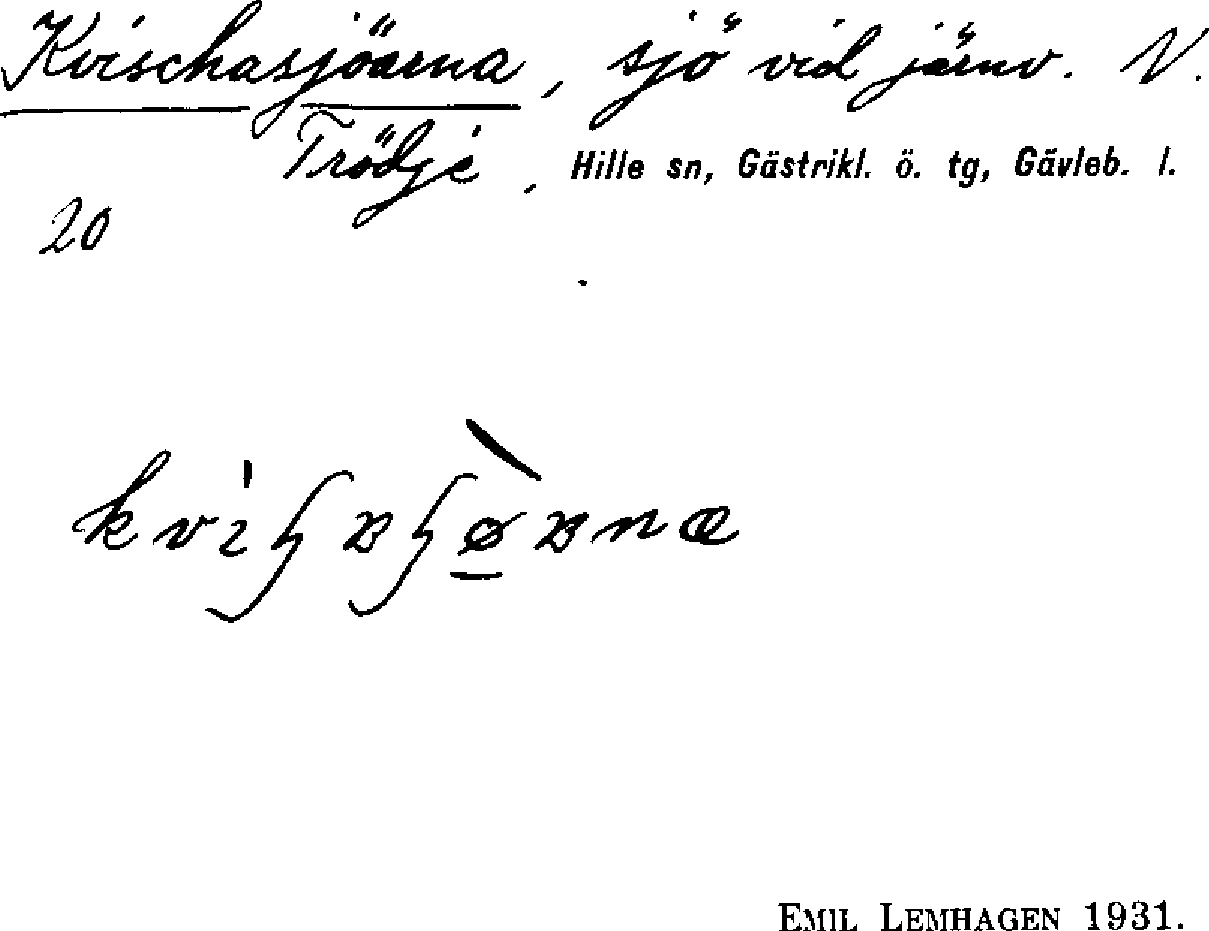 Kvischasjöarna, sjö vid järnv. V.
Trödje, Hille sn, Gästrikl. ö. tg, Gävleb. l.
20
EMIL LEMHAGEN 1931.